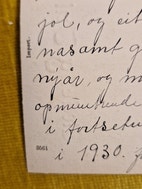 jol, og eit
nasamt g
nyår, og m
opmuntrende
i fortsetu
i 1930.
Import.